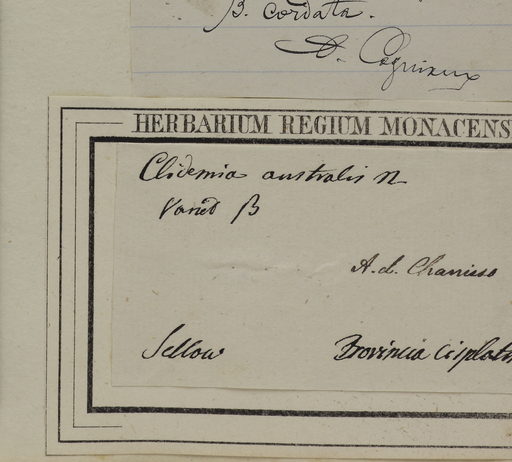 β. cordata.
A. Cogniaux
HERBARIUM REGIUM MONACENS
Clidemia australis n
Variet β
A. d. Chamisso
Sellow
Provincia Cisplatin